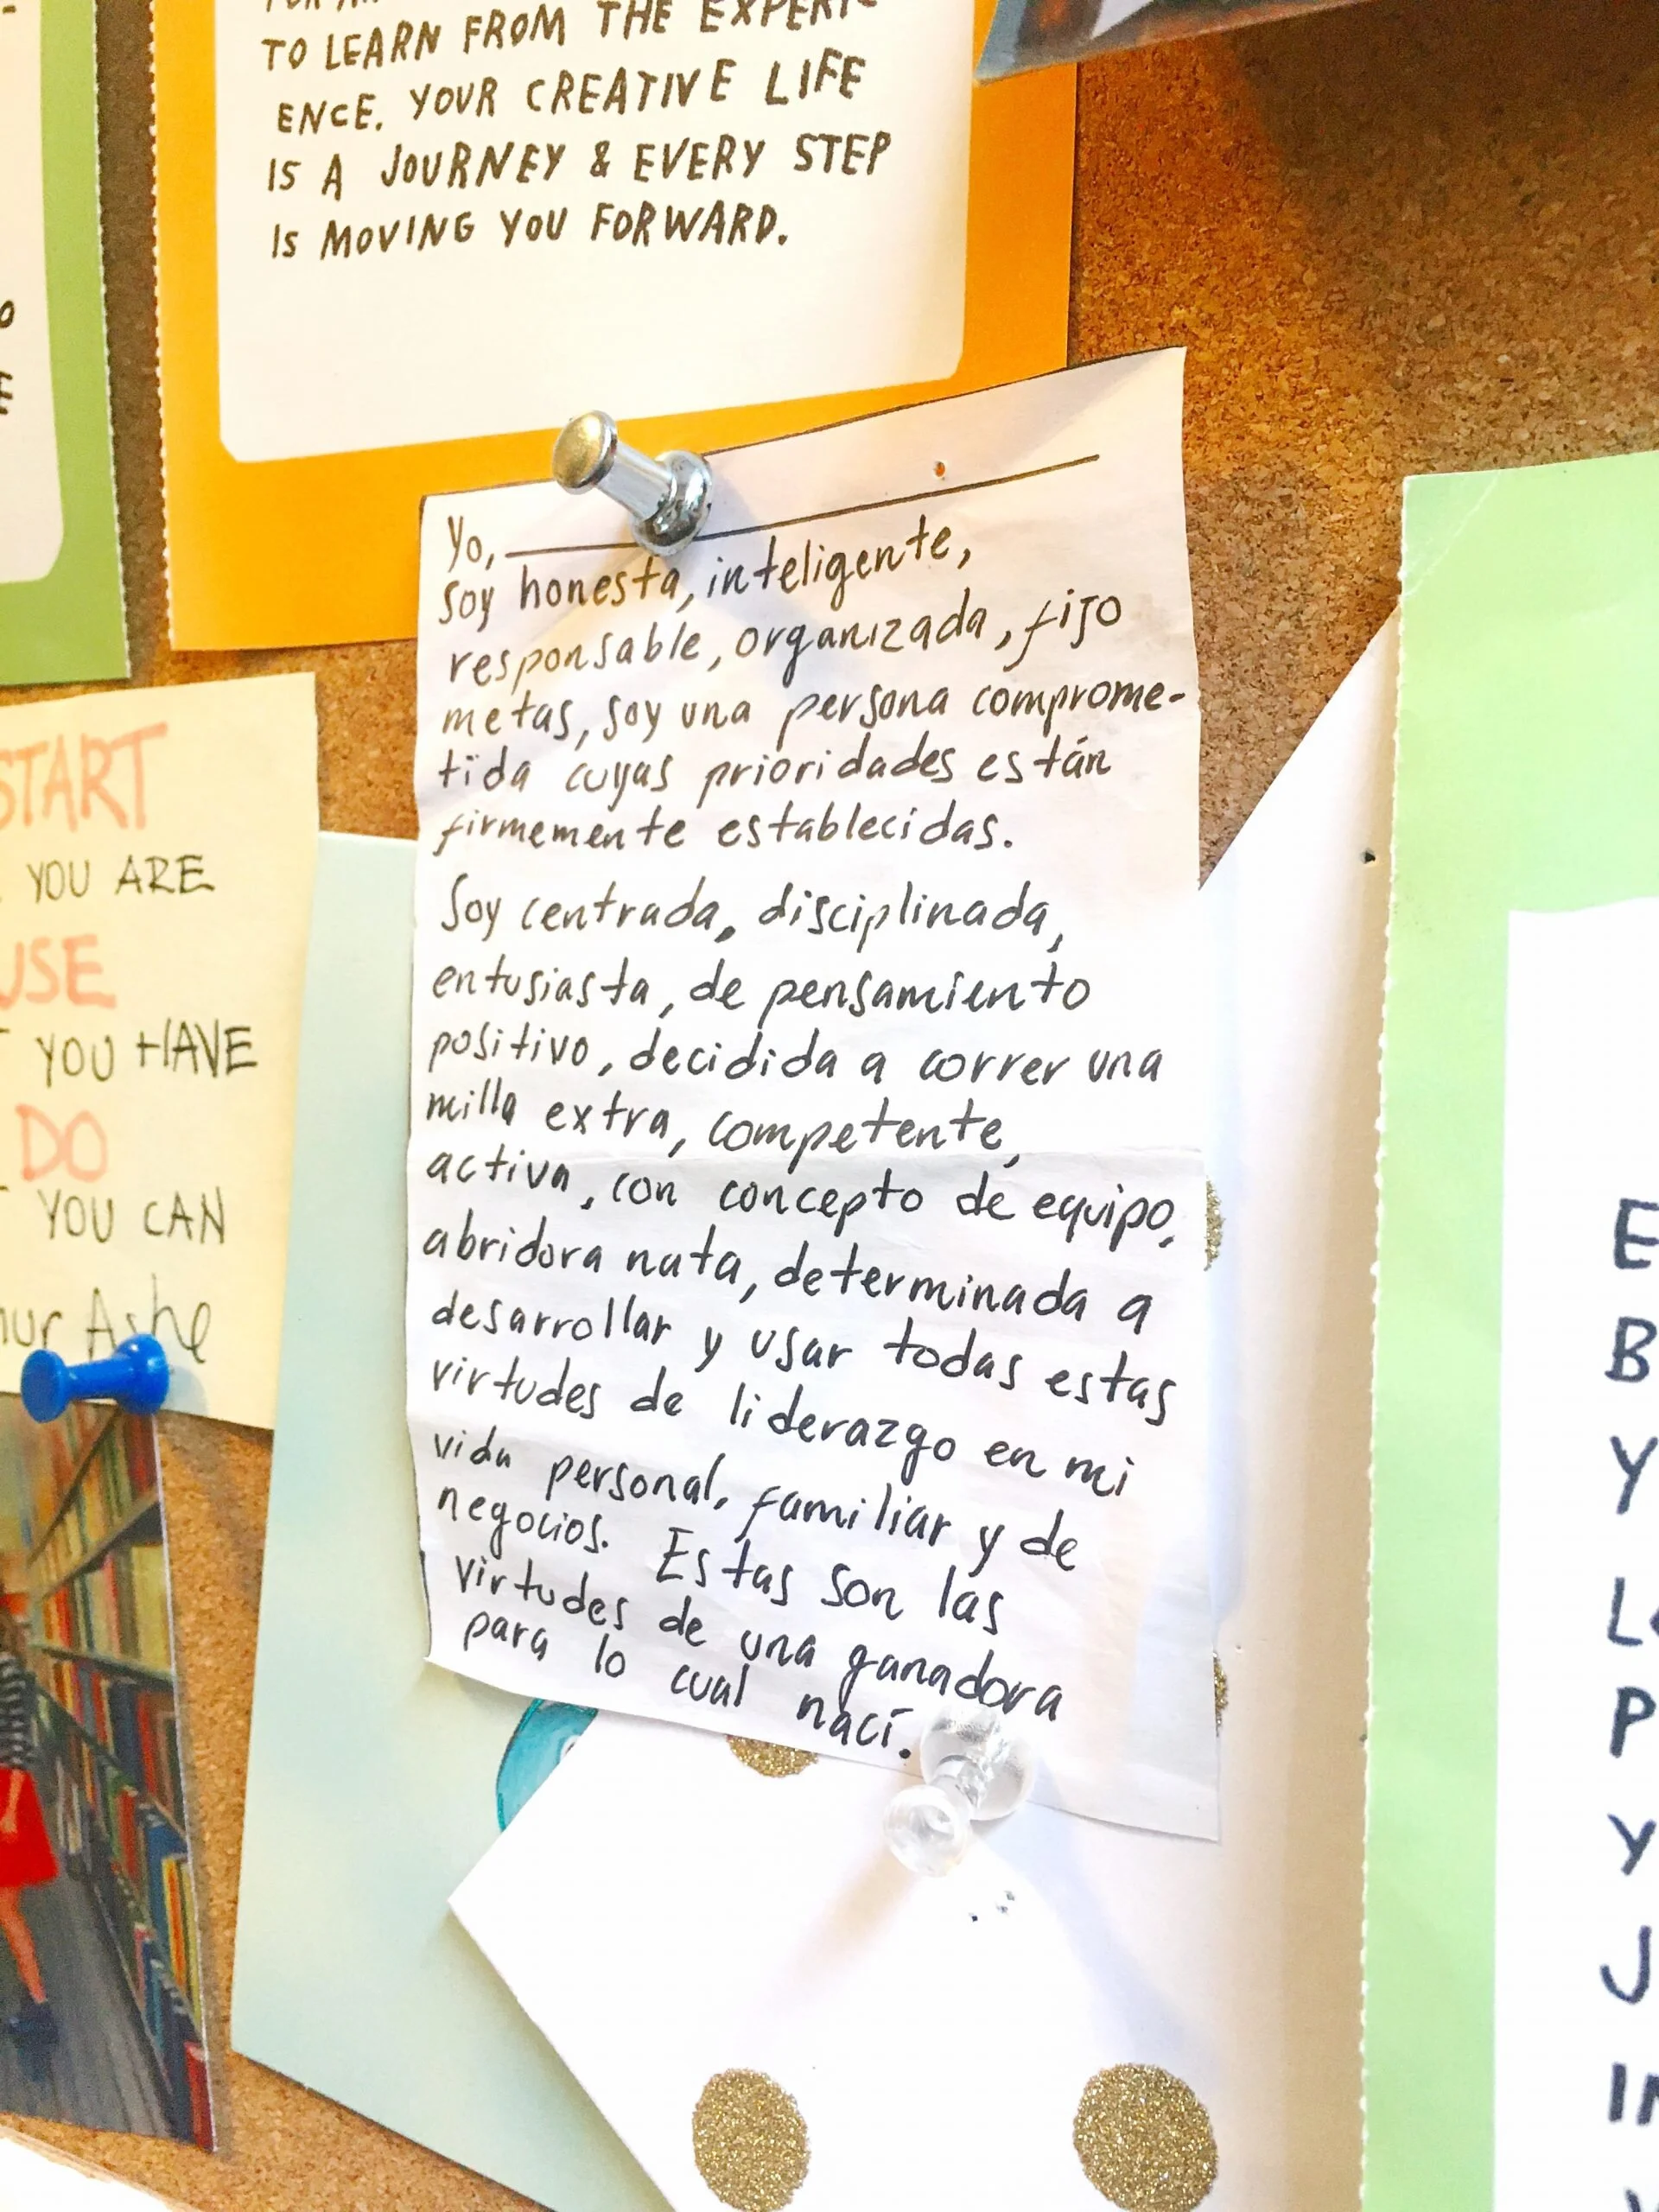 TO LEARN FROM THE EXPERI-
ENCE. YOUR CREATIVE LIFE
IS A JOURNEY & EVERY STEP
IS MOVING YOU FORWARD.
START
YOU ARE
USE
YOU HAVE
DO
YOU CAN
Ashe
Yo,
soy honesta, inteligente,
responsable, organizada, fijo
metas, soy una persona comprome-
tida cuyas prioridades están
firmemente establecidas.
Soy centrada, disciplinada,
entusiasta, de pensamiento
positivo, decidida a correr una
milla extra, competente,
activa, con concepto de equipo,
abridora nata, determinada a
desarrollar y usar todas estas
virtudes de liderazgo en mi
vida personal, familiar y de
negocios. Estas son las
virtudes de una ganadora
para lo cual nací.
E
B
Y
L
P
Y
J